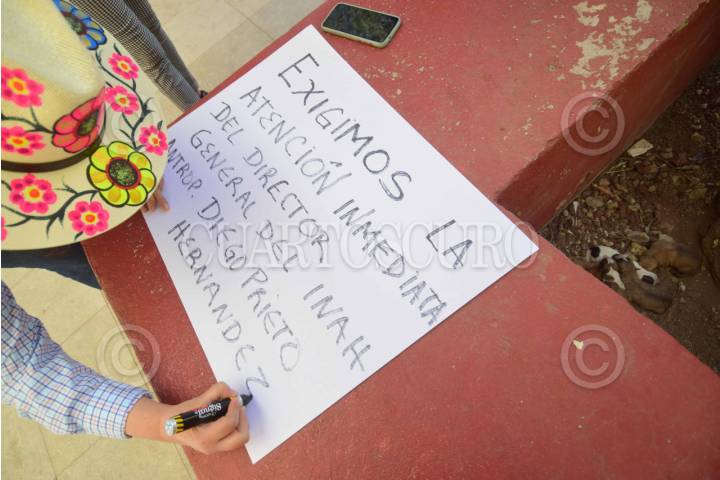 EXIGIMOS LA
ATENCIÓN INMEDIATA
DEL DIRECTOR
GENERAL DEL INAH
ANTROP. DIEGO PRIETO
HERNANDEZ
Signal
CUARTOSCURO